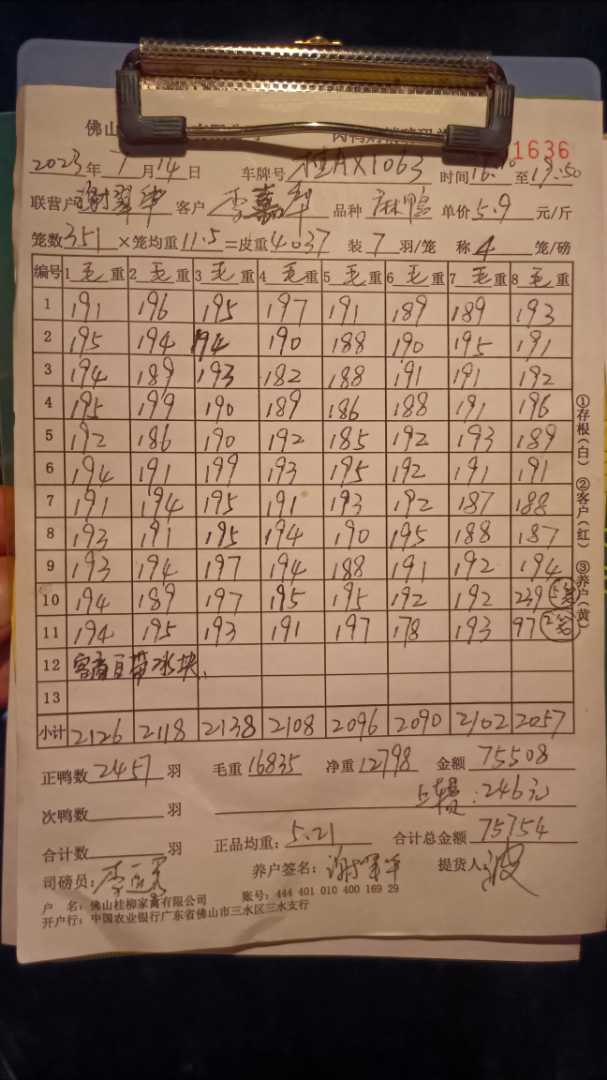 佛山
1636
2023年7月14日 车牌号 桂AX1063 时间16:10至19:50
联营户 谢翠华 客户 李嘉华 品种 麻鸭 单价5.9元/斤
笼数351×笼均重11.5=皮重4037 装7羽/笼 称4笼/磅
编号 1毛重 2毛重 3毛重 4毛重 5毛重 6毛重 7毛重 8毛重
1 191 196 195 197 191 189 189 193
2 195 194 194 190 188 190 195 191
3 194 189 193 182 188 191 191 192
4 195 199 190 189 186 188 191 196
5 192 186 190 192 185 192 193 189
6 194 191 199 193 195 192 191 191
7 191 194 195 191 193 192 187 188
8 193 191 195 194 190 195 188 187
9 193 194 197 194 188 191 192 194
10 194 189 197 195 195 192 192 239 5笼
11 194 195 193 191 197 178 193 97 2笼
12 客商自带冰块
13
小计 2126 2118 2138 2108 2096 2090 2102 2057
①存根(白) ②客户(红) ③养户(黄)
正鸭数2457羽 毛重16835 净重12798 金额75508
次鸭数 羽 :246元
合计数 羽 正品均重:5.21 合计总金额75754
司磅员: 养户签名:谢翠华 提货人:
户 名:佛山桂柳家禽有限公司 账号:444 401 010 400 169 29
开户行:中国农业银行广东省佛山市三水区三水支行